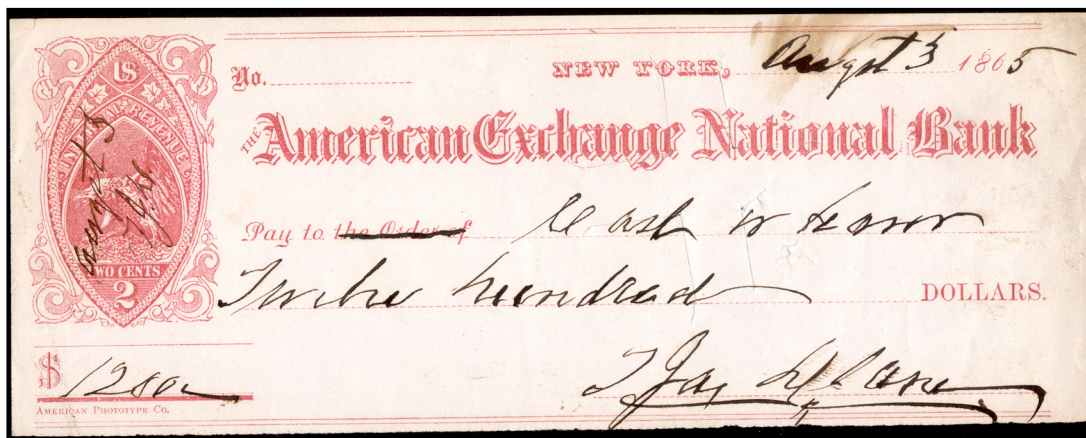 US
INTER. REVENUE
TWO CENTS
2
August 5
No. NEW YORK, Augst 5 1865
THE American Exchange National Bank
Pay to the Order of Cash or bearer
Twelve hundred DOLLARS.
$ 1200
AMERICAN PHOTOTYPE CO.